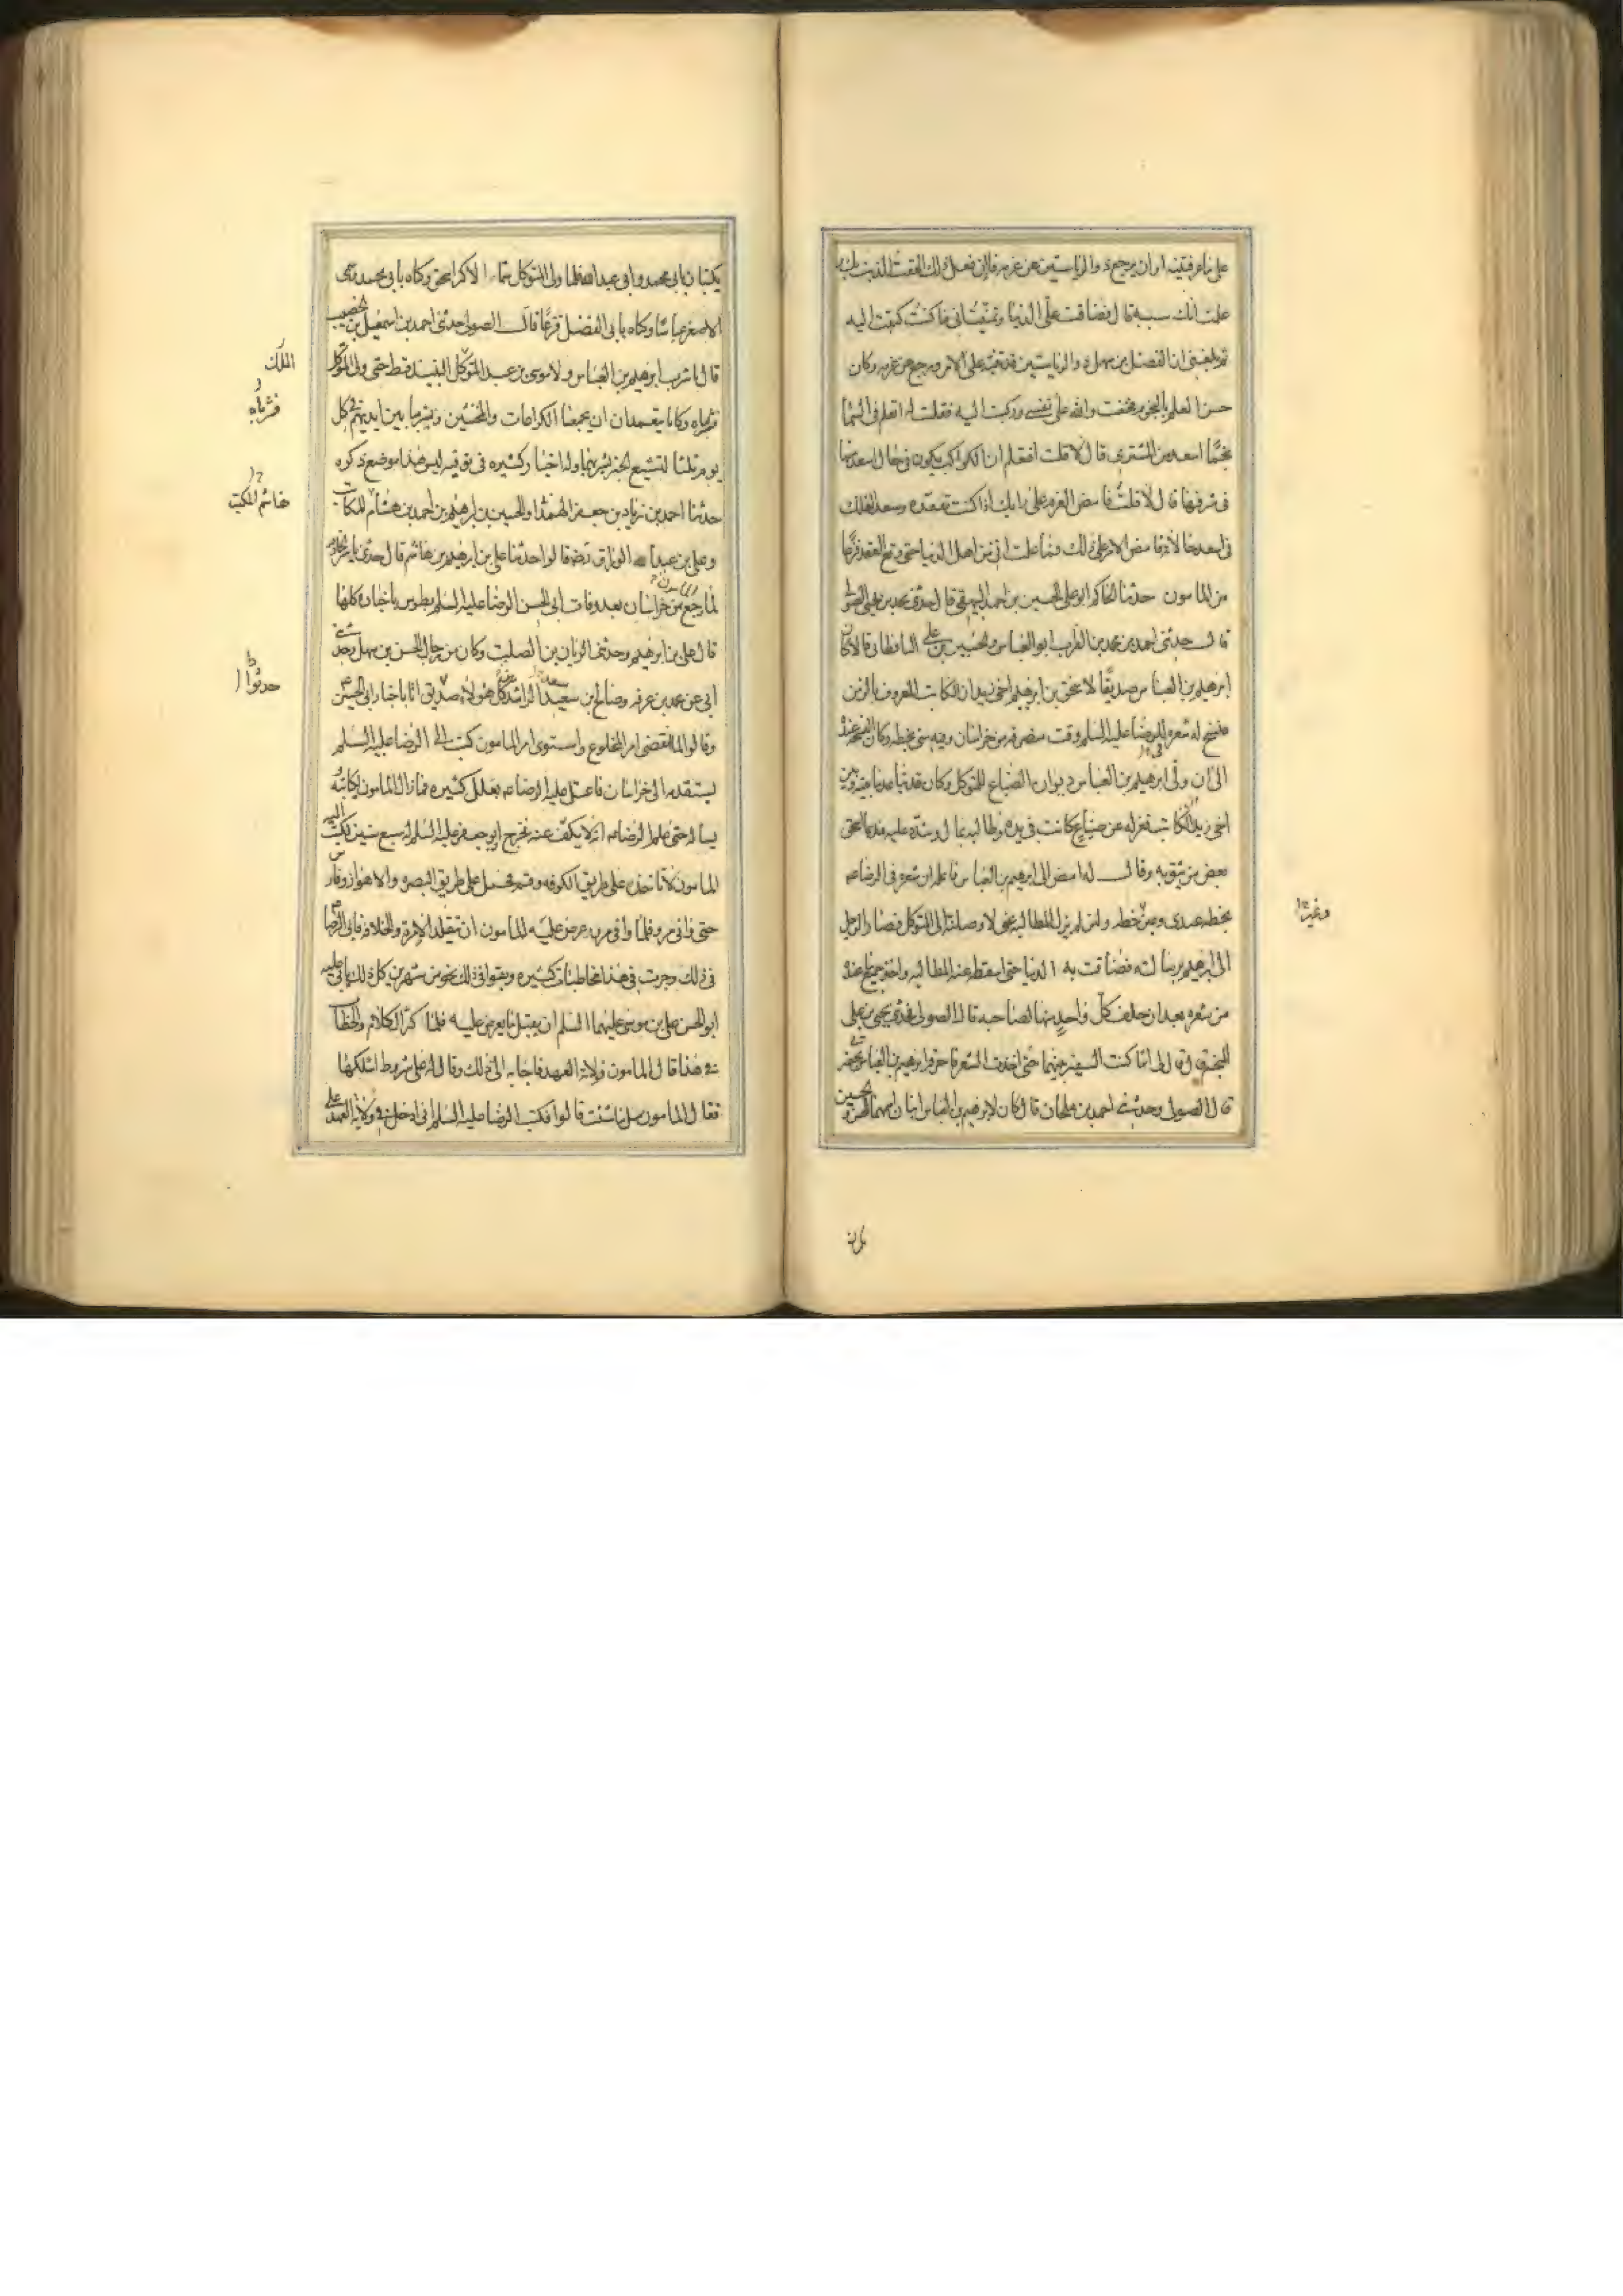 على ما عرفتنيه او ان يرجع ذو الرياستين عن عزمه فانى ان فعل ذلك الحقت الذنب بك و
علمت انك سببه قال فضاقت على الدنيا وتمنيت انى ما كنت كتبت اليه
ثم بلغنى ان الفضل بن سهل ذو الرياستين قد تنبه على الامر ورجع عن عزمه وكان
حسن العلم بالنجوم فخفت والله على نفسى وركبت اليه فقلت له اتعلم فى السماء
نجما اسعد من المشترى قال لا قلت افتعلم ان الكواكب يكون فى حال اسعد منها
فى شرفها قال لا قلت فامض العزم على رايك اذا كنت تعقده وسعد الفلك
فى اسعد حالاته فامض الامر على ذلك وما علمت انى من اهل الدنيا حتى وقع العقد فزعا
من المامون حدثنا الحاكم ابو على الحسين بن احمد البيهقى قال حدثنى محمد بن يحيى الصولى
قال حدثنى احمد بن محمد بن الفرات ابو العباس والحسين بن على الباقطانى قالا كان
ابرهيم بن العباس صديقا لاسحق بن ابرهيم اخى زيدان الكاتب المعروف بالزمن
فنسخ له شعره فى الرضا عليه السلم وقت منصرفه من خراسان وفيه شئ بخطه وكان النسخة عنده
الى ان ولى ابرهيم بن العباس ديوان الضياع للمتوكل وكان قد تباعد ما بينه وبين
اخى زيدان الكاتب فعزله عن ضياع كانت فى يده وطالبه بمال وشدد عليه فدعا اسحق
بعض من يثق به وقال له امض الى ابرهيم بن العباس فاعلمه ان شعره فى الرضا عه
بخطه عندى وغير خطه ولئن لم يزل المطالبة عنى لاوصلنه الى المتوكل فصار الرجل
الى ابرهيم برسالته فضاقت به الدنيا حتى اسقط عنه المطالبة واخذ جميع ما عنده
من شعره بعد ان حلف كل واحد منهما لصاحبه قال الصولى فحدثنى يحيى بن على
المنجم قال قال لى انا كنت السفير بينهما حتى اخذت الشعر فاحرقه ابرهيم بن العباس بحضرتى
قال الصولى وحدثنى احمد بن ملحان قال كان لابرهيم بن العباس ابنان اسمهما الحسن والحسين
يكنيان بابى محمد وابى عبد الله فلما ولى المتوكل سمى الاكبر اسحق وكناه بابى محمد وسمى
الاصغر عباسا وكناه بابى الفضل فزعا قال الصولى حدثنى احمد بن اسمعيل بن الخضيب
قال ما شرب ابرهيم بن العباس ولا موسى بن عبد الملك النبيذ قط حتى ولى المتوكل
فشرباه وكانا يتعمدان ان يجمعا الكراعات والمخنثين ويشربا بين ايديهم فى كل
يوم ثلثا لتشيع الخبر بشربهما وله اخبار كثيره فى توقيه ليس هذا موضع ذكره
حدثنا احمد بن زياد بن جعفر الهمدانى والحسين بن ابرهيم بن احمد بن هشام المكتب
وعلى بن عبد الله الوراق رضه قالوا حدثنا على بن ابرهيم بن هاشم قال حدثنى ياسر الخادم
لما رجع المامون من خراسان بعد وفات ابى الحسن الرضا عليه السلم بطوس باخباره كلها
قال على بن ابرهيم وحدثنى الريان بن الصلت وكان من رجال الحسن بن سهل وحدثنى
ابى عن محمد بن عرفه وصالح بن سعيد الراشدى كل هولاء حدثوا باخبار ابى الحسن
وقالوا لما انقضى امر المخلوع واستوى امر المامون كتب الى الرضا عليه السلم
يستقدمه الى خراسان فاعتل عليه الرضا عه بعلل كثيره فما زال المامون يكاتبه و
يساله حتى علم الرضا عه انه لا يكف عنه فخرج وابو جعفر عليه السلم له سبع سنين فكتب اليه
المامون لا تاخذ على طريق الكوفه وقم فحمل على طريق البصره والاهواز وفارس
حتى وافى مرو فلما وافى مرو عرض عليه المامون ان يتقلد الامرة والخلافه فابى الرضا
فى ذلك وجرت فى هذا مخاطبات كثيره وبقوا فى ذلك نحو من شهرين كل ذلك يابى عليه
ابو الحسن على بن موسى عليهما السلم ان يقبل ما يعرض عليه فلما كثر الكلام والخطاب
فى هذا قال المامون فولاية العهد فاجابه الى ذلك وقال له على شروط اسئلكها
فقال المامون سل ما شئت قالوا فكتب الرضا عليه السلم انى ادخل فى ولاية العهد على
الملك
فشرباه
هاشم المكتب
حدثوا